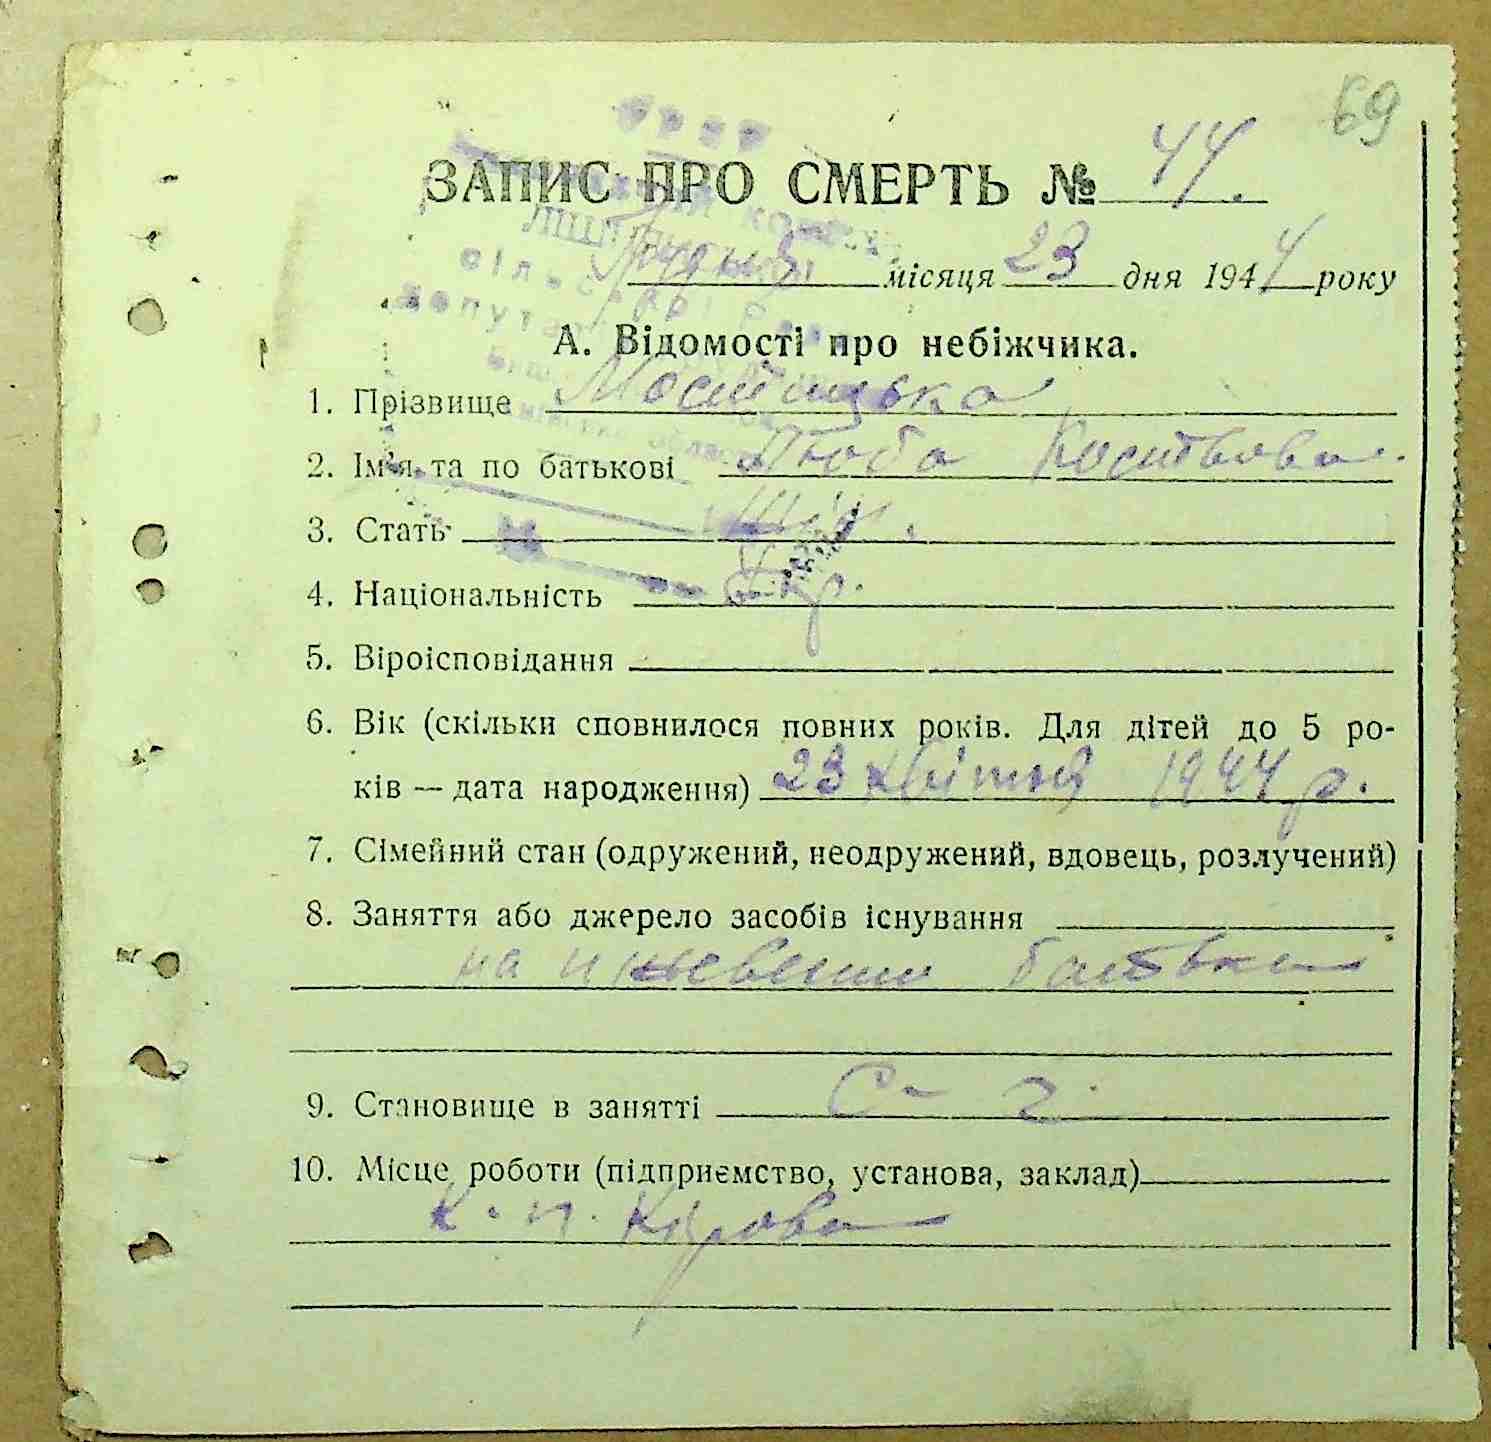 69
ЗАПИС ПРО СМЕРТЬ № 44.
Грудня місяця 23 дня 1944 року
А. Відомості про небіжчика.
1. Прізвище Мостицька
2. Ім'я та по батькові Люба Костьова.
3. Стать Жін.
4. Національність Укр.
5. Віроісповідання
6. Вік (скільки сповнилося повних років. Для дітей до 5 ро-
ків — дата народження) 23 квітня 1944 р.
7. Сімейний стан (одружений, неодружений, вдовець, розлучений)
8. Заняття або джерело засобів існування
на батька
9. Становище в занятті С- г.
10. Місце роботи (підприємство, установа, заклад)
К. п. Кірова